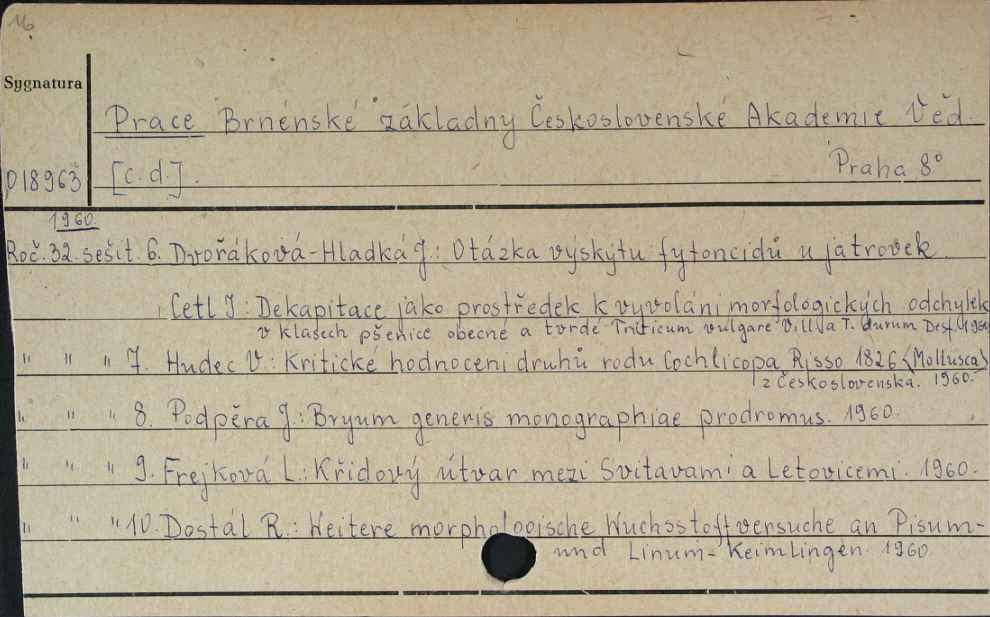 16
Sygnatura
Prace Brněnské základny Československé Akademie Věd.
D18963 [c.d.]. Praha 8°
1960.
Roč. 32. sešit. 6. Dvořáková-Hladká J.: Otázka výskytu fytoncidů u jatrovek.
Cetl J: Dekapitace jako prostředek k vyvolání morfologických odchylek
v klasech pšenice obecné a tvrdé Triticum vulgare Vill. a T. durum Desf. 1960
" " " 7. Hudec V: Kritické hodnocení druhů rodu Cochlicopa Risso 1826 <Mollusca>
z Československa. 1960.
" " " 8. Podpěra J.: Bryum generis monographiae prodromus. 1960.
" " " 9. Frejková L.: Křídový útvar mezi Svitavami a Letovicemi. 1960.
" " " 10. Dostál R.: Weitere morphologische Wuchsstoffversuche an Pisum-
und Linum-Keimlingen. 1960.